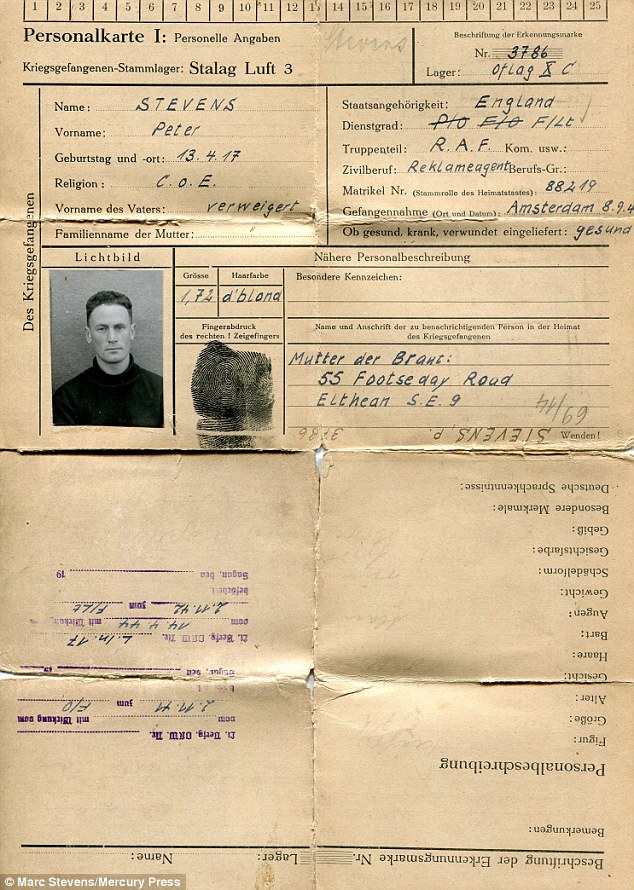 1 2 3 4 5 6 7 8 9 10 11 12 13 14 15 16 17 18 19 20 21 22 23 24 25
Personalkarte I: Personelle Angaben
Kriegsgefangenen-Stammlager: Stalag Luft 3
Stevens
Beschriftung der Erkennungsmarke
Nr. 3786
Lager: Oflag X C
Des Kriegsgefangenen
Name: STEVENS
Vorname: Peter
Geburtstag und -ort: 13.4.17
Religion: C.o.E.
Vorname des Vaters: verweigert
Familienname der Mutter: "
Staatsangehörigkeit: England
Dienstgrad: P/O F/O F/Lt
Truppenteil: R.A.F. Kom. usw.:
Zivilberuf: Reklameagent Berufs-Gr.:
Matrikel Nr. (Stammrolle des Heimatstaates): 88219
Gefangennahme (Ort und Datum): Amsterdam 8.9.4
Ob gesund, krank, verwundet eingeliefert: gesund
Lichtbild
Grösse
Haarfarbe
1,72
d'blond
Fingerabdruck
des rechten ! Zeigefingers
Nähere Personalbeschreibung
Besondere Kennzeichen:
Name und Anschrift der zu benachrichtigenden Person in der Heimat
des Kriegsgefangenen
Mutter der Braut:
55 Footseday Road
Elthean S.E.9
69/14
Wenden!
STEVENS, P. 3786
Beschriftung der Erkennungsmarke Nr.
Lager:
Name:
Bemerkungen:
Personalbeschreibung
Figur:
Größe:
Alter:
Gesicht:
Haare:
Bart:
Augen:
Gewicht:
Schädelform:
Gesichtsfarbe:
Gebiß:
Besondere Merkmale:
Deutsche Sprachkenntnisse:
Lt. Verfg. OKW. Nr.
vom mit Wirkung vom
2.11.41 zum F/O
Lt. Verfg. OKW. Nr. L.In. 17
vom 14.4.44 mit Wirkung
2.11.42 zum F/Lt
befördert.
Sagan, den 19
© Marc Stevens/Mercury Press